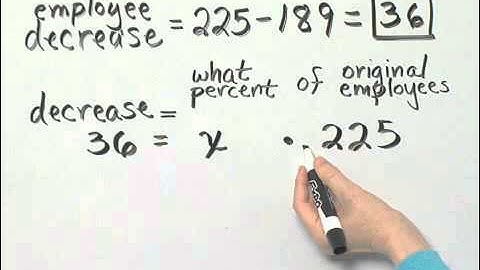 employee
decrease = 225 - 189 = 36
what
percent of original
employees
decrease =
36 = x · 225
EXPO